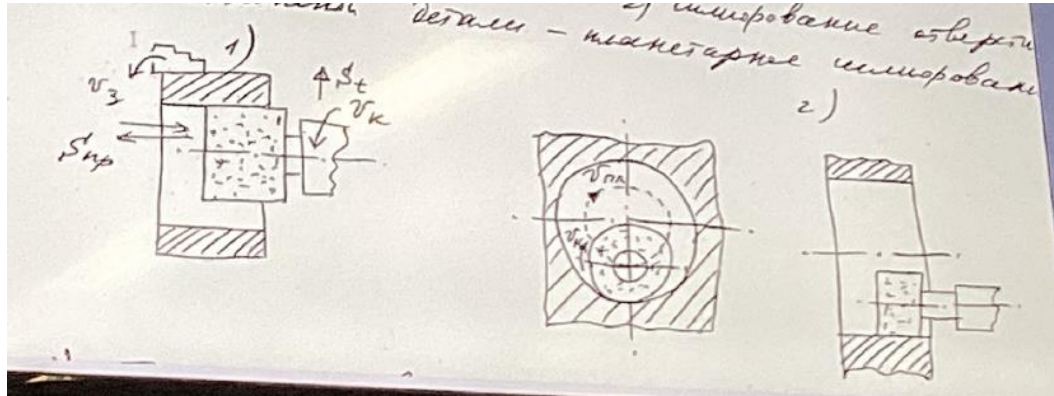 2) шлифование отверсти
детали – планетарное шлифован
1)
I
v з
S t
v к
S пр
2)
v пл
v кр